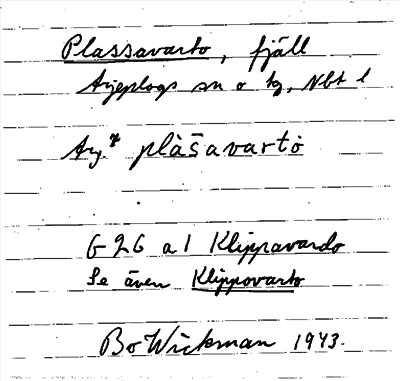 Plassavarto, fjäll
Arjeplogs sn o tg, Nbt l
Arj. plàšavartò
G 26 a 1 Klippavardo
Se även Klippovarto
Bo Wickman 1943.